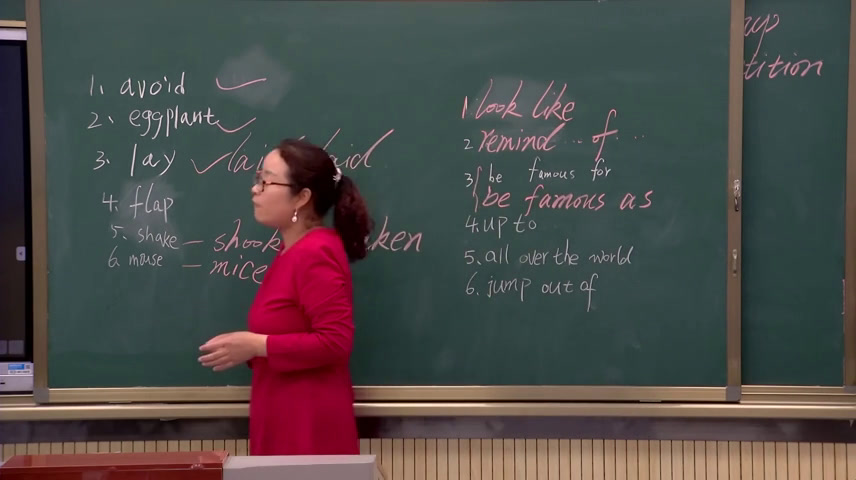 1. avoid
2. eggplant
3. lay laid
4. flap
5. shake — shook
6. mouse — mice
1 look like
2 remind ... of ...
3 be famous for
be famous as
4. up to
5. all over the world
6. jump out of